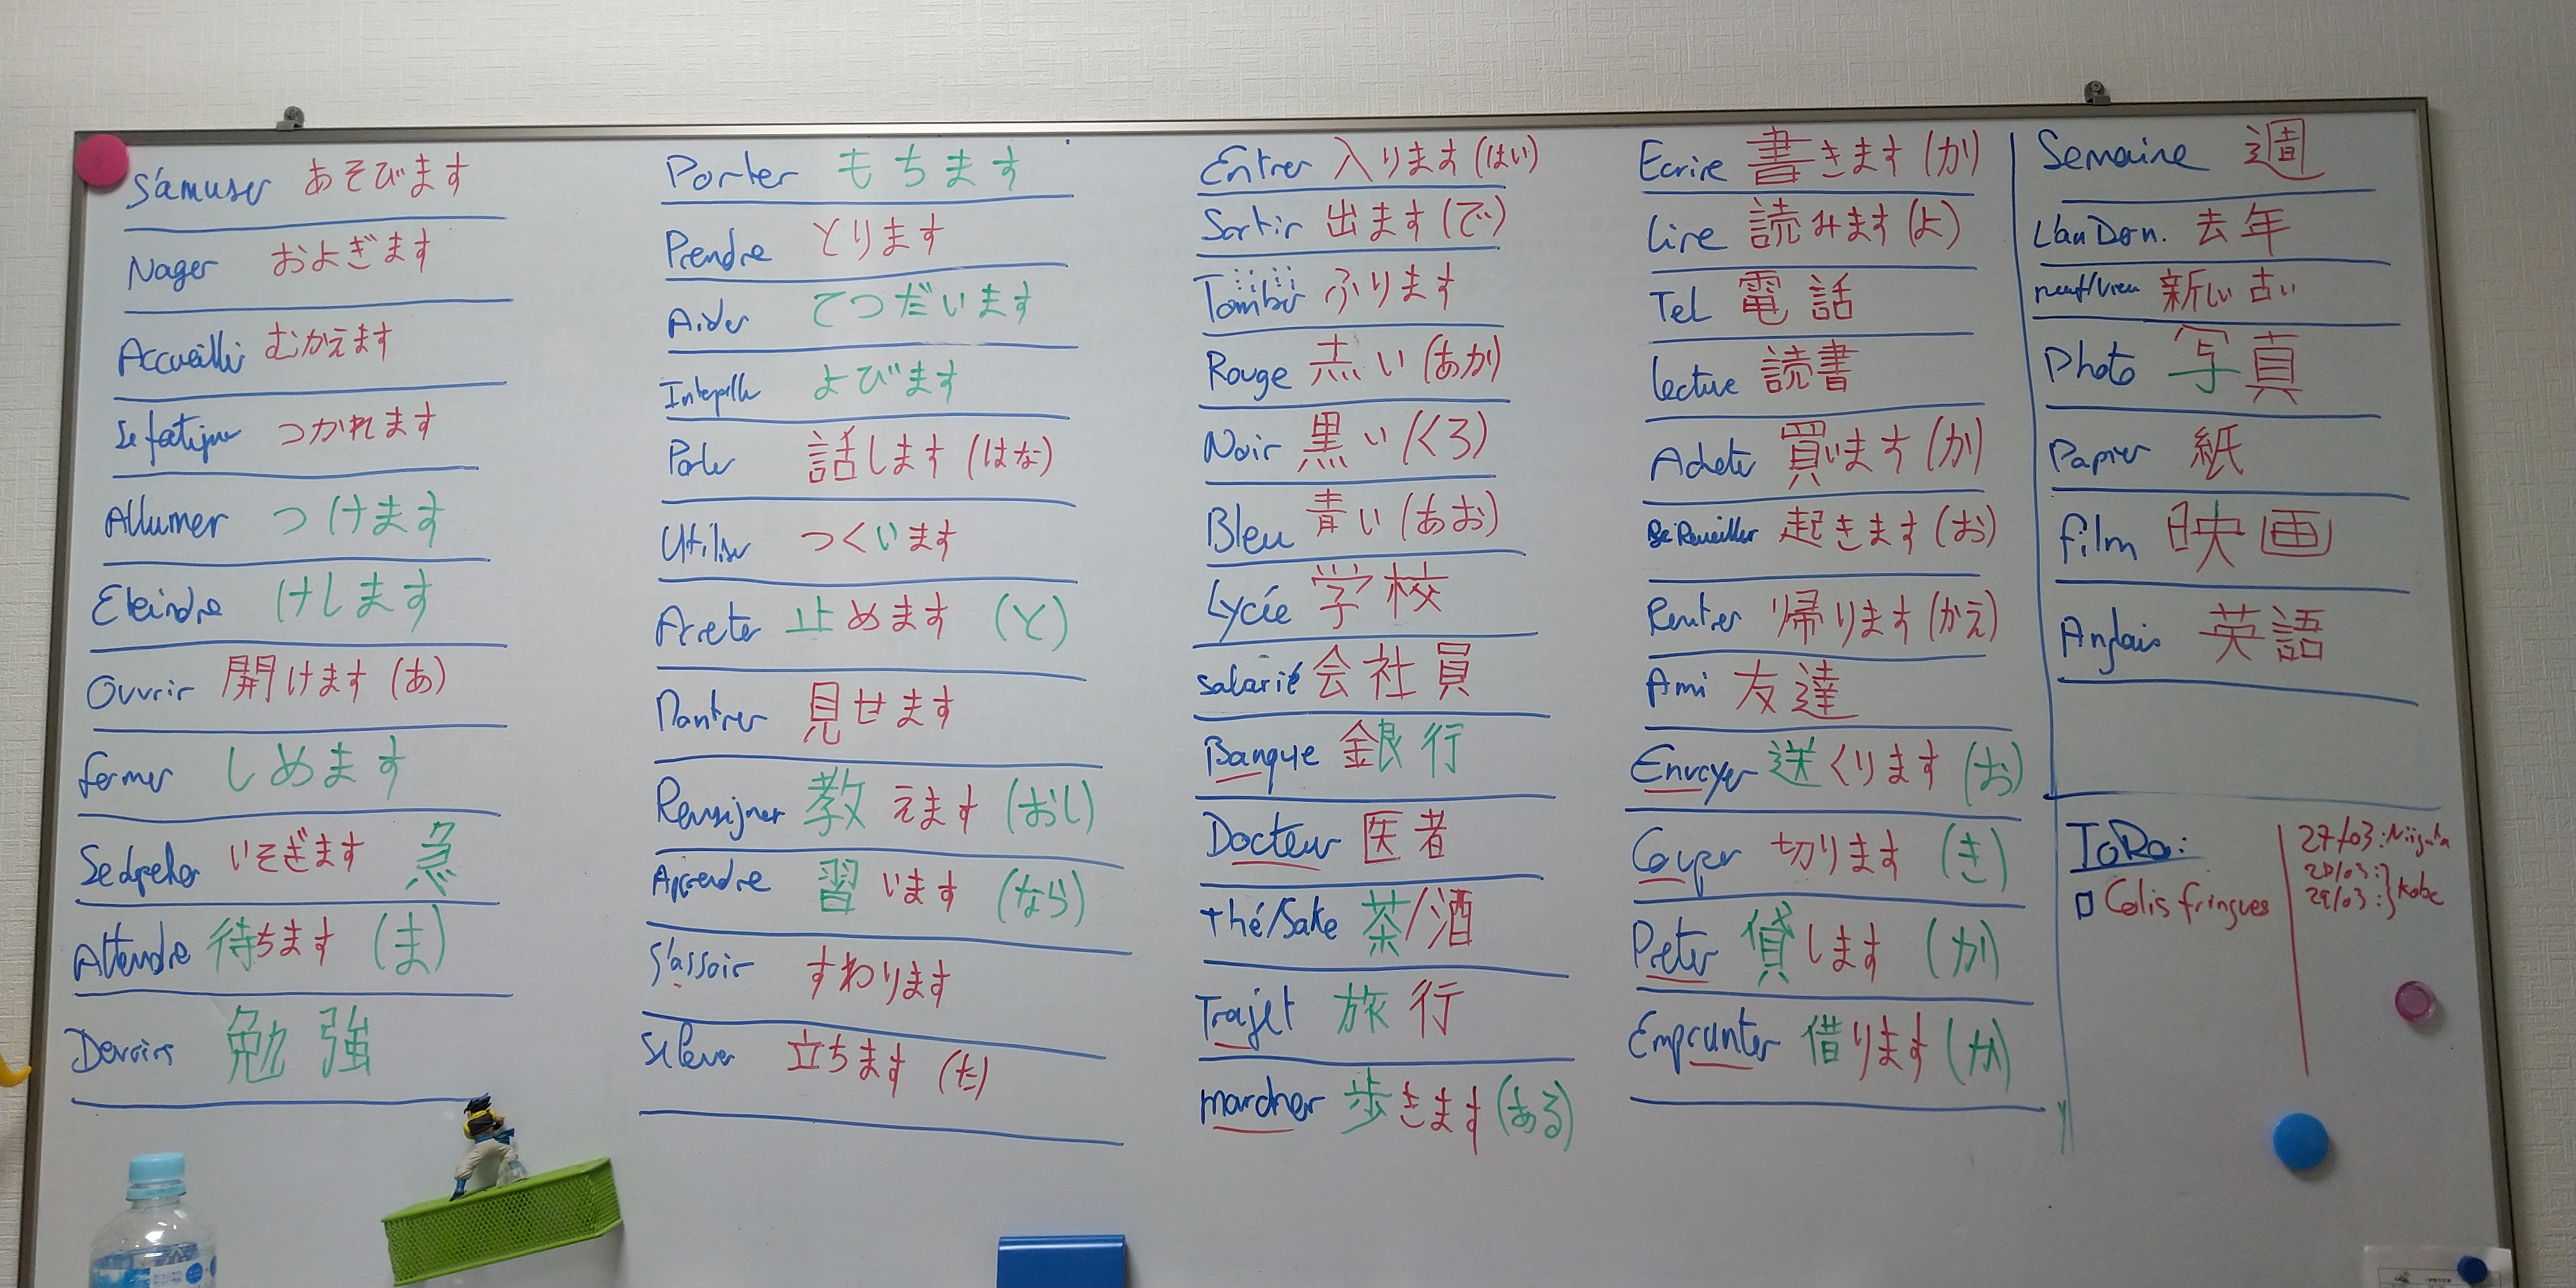 S'amuser あそびます
Nager およぎます
Accueillir むかえます
Se fatiguer つかれます
Allumer つけます
Eteindre けします
Ouvrir 開けます (あ)
fermer しめます
Se dépêcher いそぎます 急
Attendre 待ちます (ま)
Devoirs 勉強
Porter もちます
Prendre とります
Aider てつだいます
Interpeller よびます
Parler 話します (はな)
Utiliser つくいます
Arreter 止めます (と)
Montrer 見せます
Renseigner 教えます (おし)
Apprendre 習います (なら)
S'assoir すわります
Se lever 立ちます (た)
Entrer 入ります (はい)
Sortir 出ます (で)
Tomber ふります
Rouge 赤い (あか)
Noir 黒い (くろ)
Bleu 青い (あお)
Lycée 学校
Salarié 会社員
Banque 銀行
Docteur 医者
thé/Sake 茶/酒
Trajet 旅行
marcher 歩きます (ある)
Ecrire 書きます (か)
Lire 読みます (よ)
Tel 電話
Lecture 読書
Acheter 買います (か)
Se Reveiller 起きます (お)
Rentrer 帰ります (かえ)
Ami 友達
Envoyer 送くります (お)
Couper 切ります (き)
Preter 貸します (か)
Emprunter 借ります (か)
Semaine 週
L'an Dern. 去年
neuf/vieu 新しい 古い
Photo 写真
Papier 紙
film 映画
Anglais 英語
ToDo:
Colis fringues
27/03: Niigata
28/03:
29/03: } Kobe